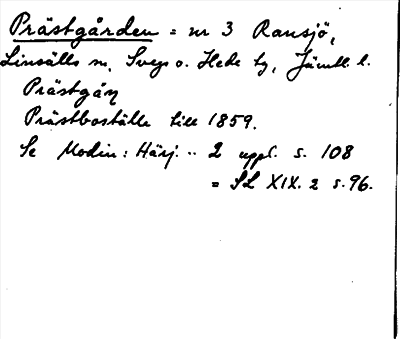 Prästgården = nr 3 Ransjö,
Linsälls sn, Svegs o. Hede tg, Jämtl. l.
Prästgåṇ
Prästboställe till 1859.
Se Modin: Härj. .. 2 uppl. s. 108
= SL XIX. 2 s. 96.